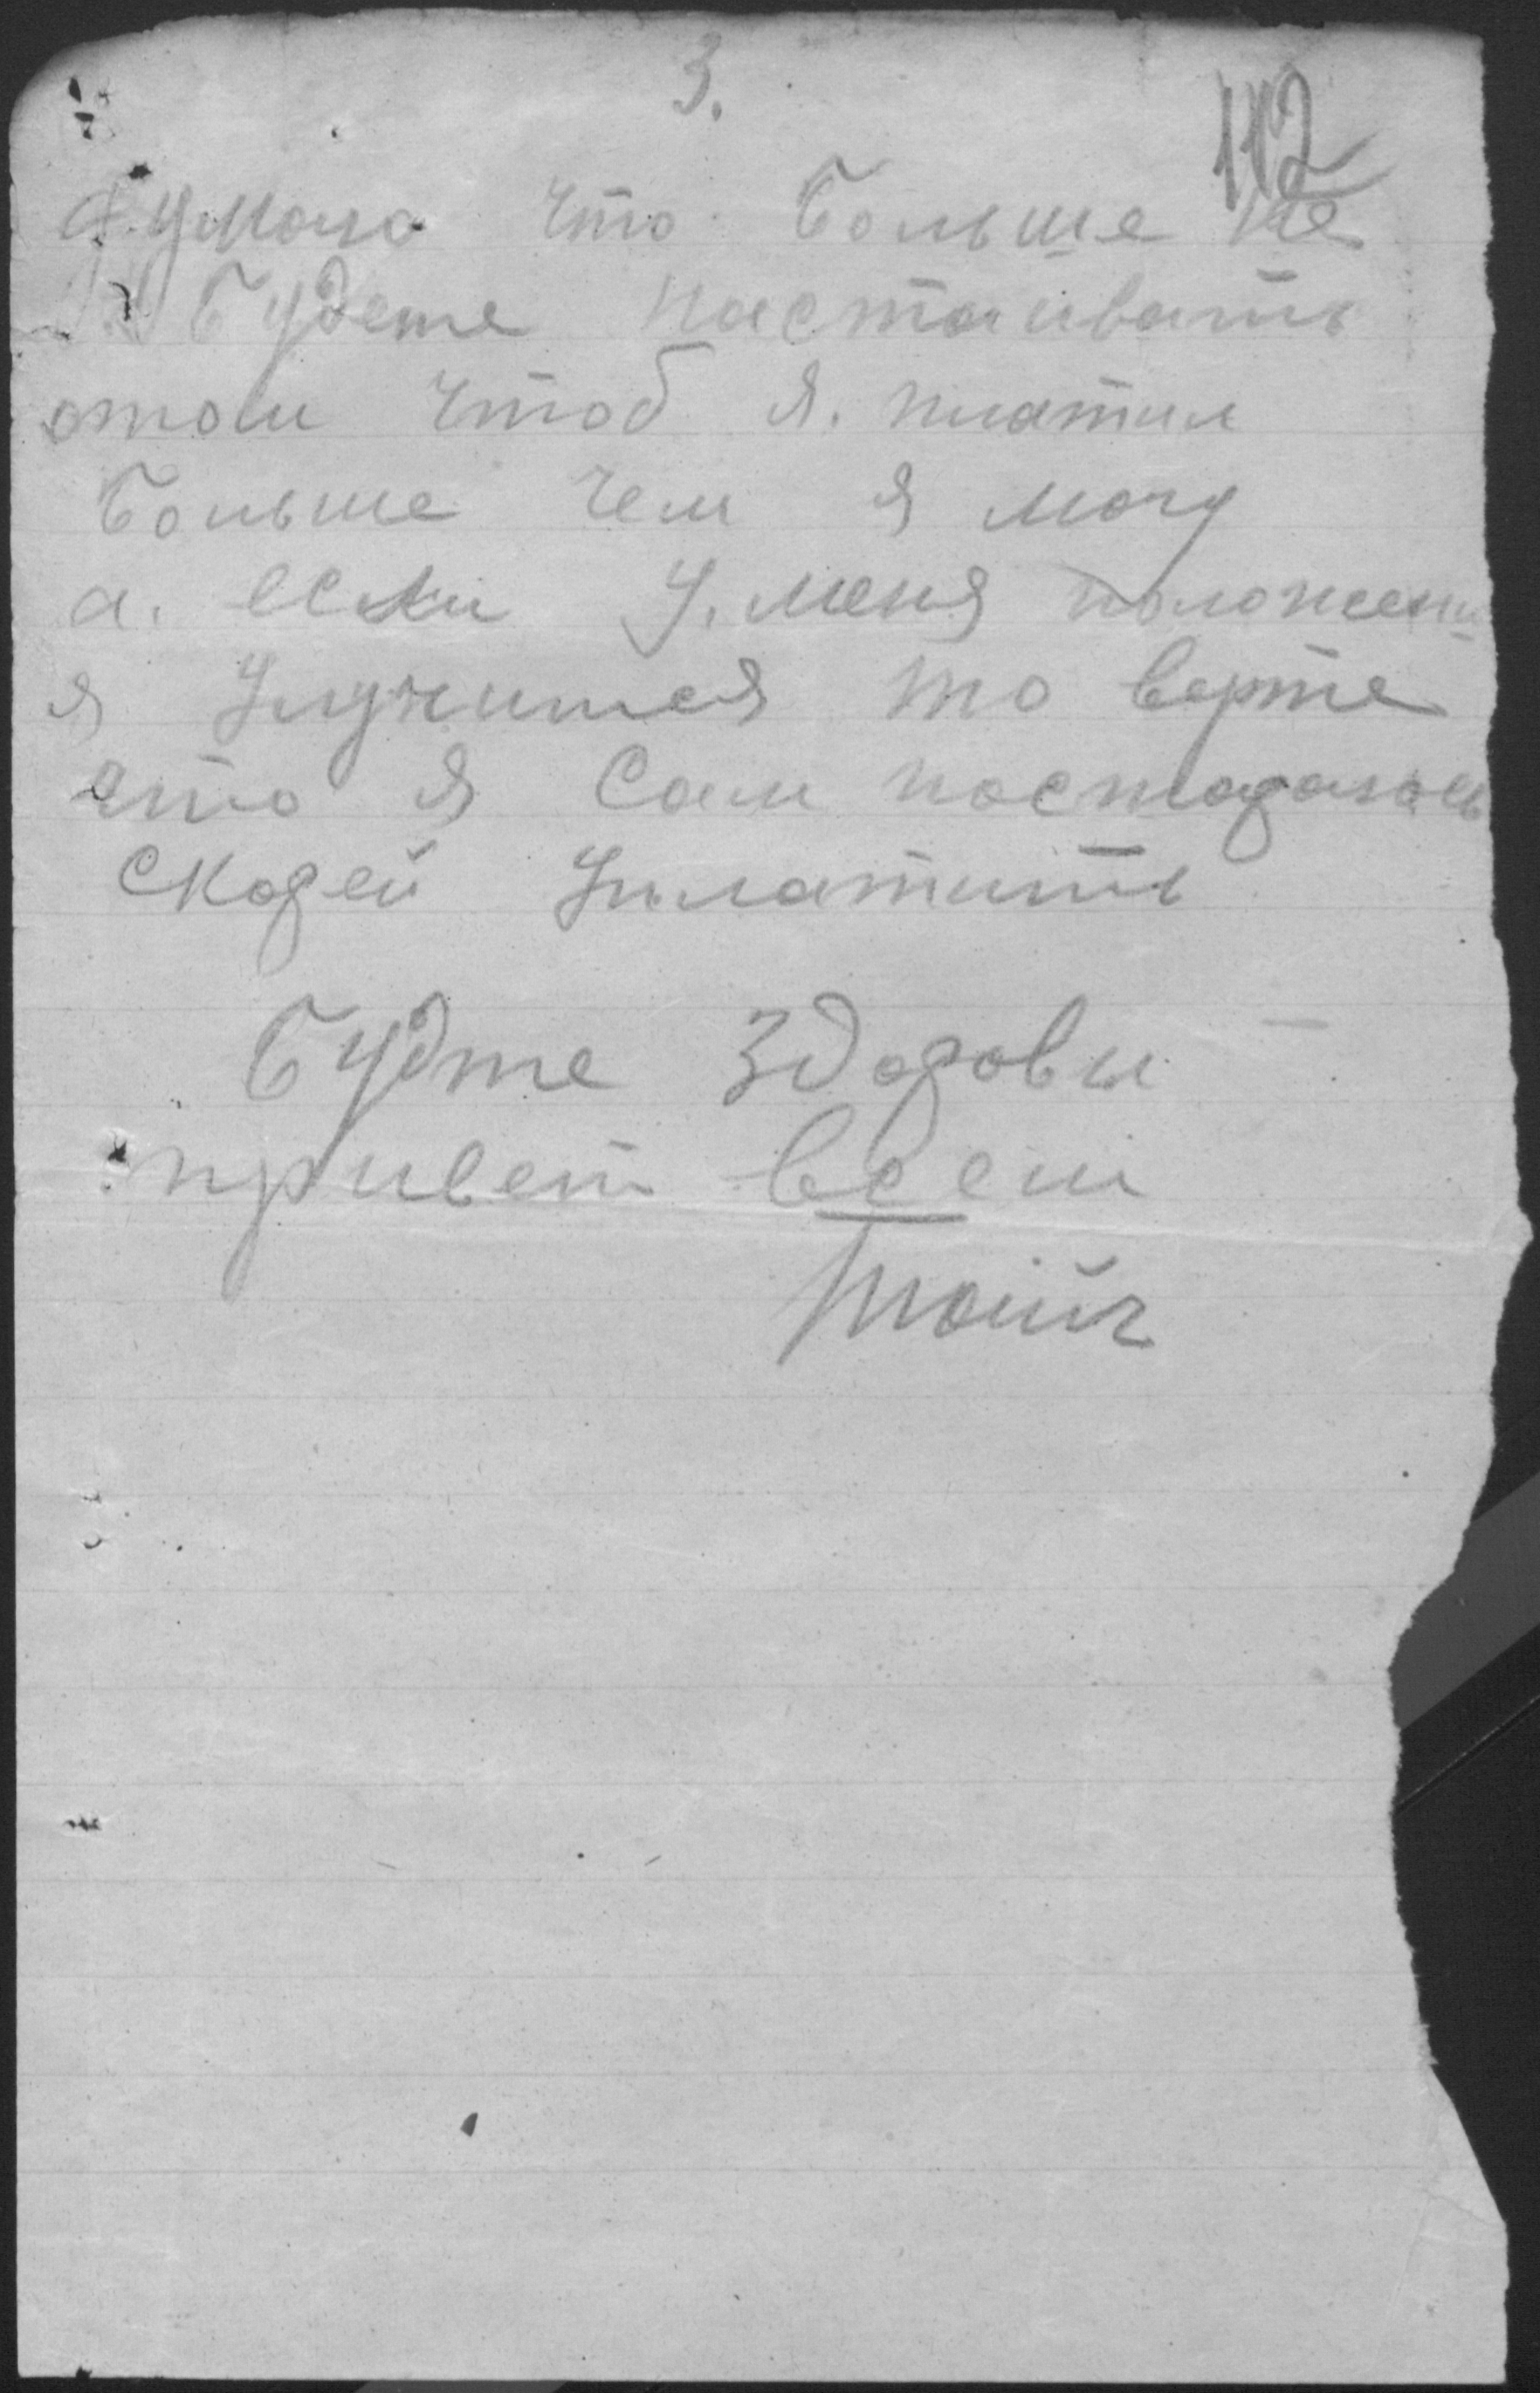 3.
112
думаю что больше не
будете настаивать
отом чтоб я. платил
больше чем я могу
а. если у. меня положени
я улучится то верте
что я сам постараюсь
скорей уплатить
будте здоровы
привет всем